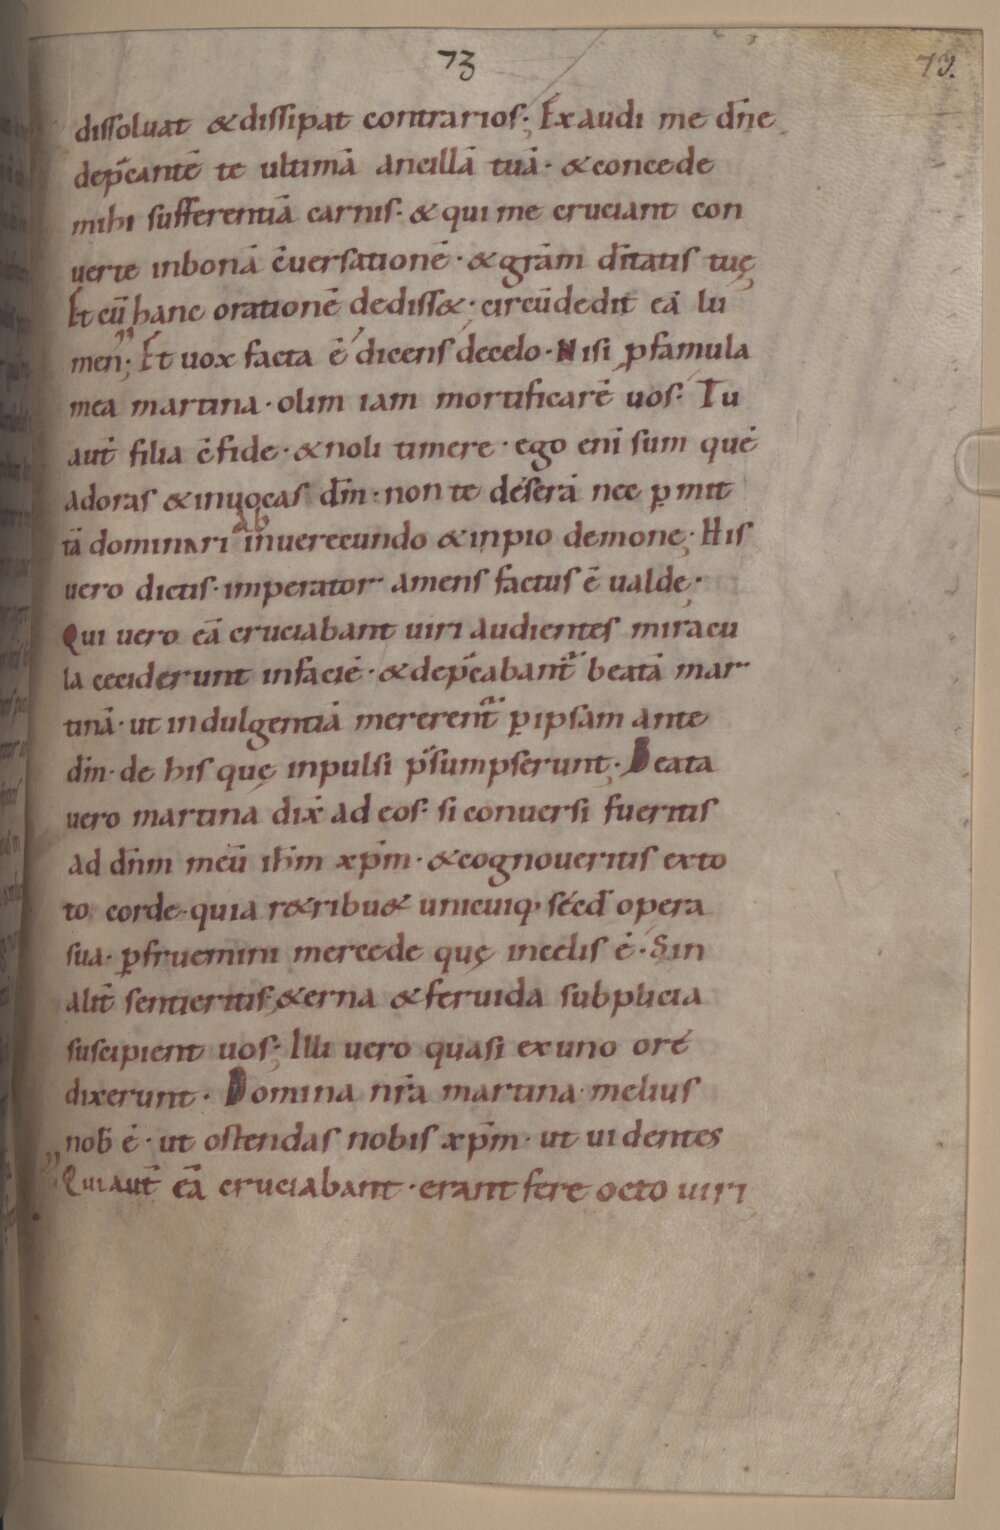 73
73.
dissoluat & dissipat contrarios; Exaudi me dn̄e
dep̄cantē te ultimā ancillā tuā· & concede
mihi sufferentiā carnis· & qui me cruciant con
uerte inbonā c̄uersationē· & grām dītatis tuę
Et cū hanc orationē dediss&· circūdedit eā lu
men; Et uox facta ē dicens decelo· Nisi ꝑfamula
mea martina· olim iam mortificarē uos· Tu
aut̄ filia c̄fide· & noli timere· ego enī sum quē
adoras & inuocas dm̄· non te deserā nec ꝑmit
tā dominari ab inuerecundo & inpio demone; His
uero dictis· imperator amens factus ē ualde·
Qui uero eā cruciabant uiri audientes miracu
la ceciderunt infaciē· & dep̄cabant̄ beatā mar
tinā· ut indulgentiā mererent̄ ꝑipsam ante
dm̄· de his quę inpulsi p̄sumpserunt· Beata
uero martina dix̄ ad eos· si conuersi fueritis
ad dn̄m meū ihm̄ xpm̄· & cognoueritis exto
to corde· quia r&ribu& unicuiq· sēcd̄ opera
sua· ꝑfruemini mercede quę incelis ē· Sin
alit̄ senseritis· &erna & feruida subplicia
suscipient uos; Illi uero quasi exuno ore
dixerunt· Domina nr̄a martina· melius
nob̄ ē· ut ostendas nobis xpm̄· ut uidentes
Qui aut̄ eā cruciabant· erant fere octo uiri